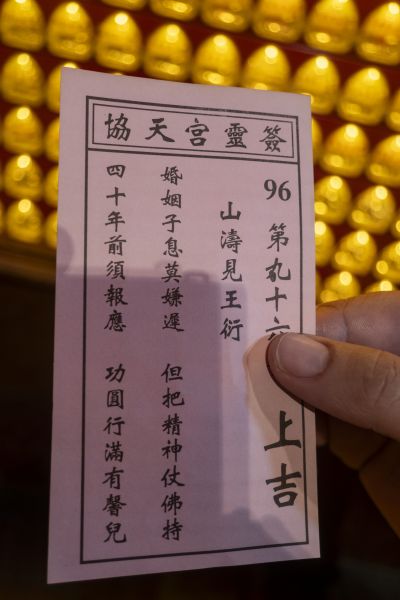 協天宮靈簽
96
第丸十六
上吉
山濤見王衍
婚姻子息莫嫌遲 但把精神仗佛持
四十年前須報應 功圓行滿有馨兒